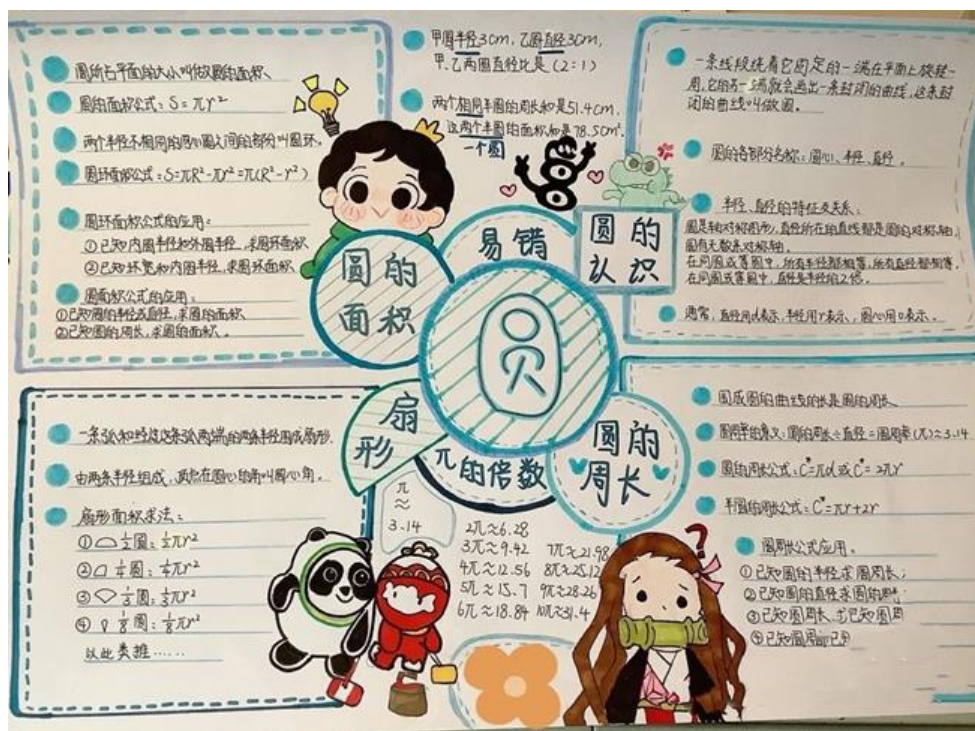 圆所占平面的大小叫做圆的面积
圆的面积公式：S=πr²
两个半径不相同的同心圆之间的部分叫圆环.
圆环面积公式：S=πR²-πr²=π(R²-r²)
圆环面积公式的应用：
①已知内圆半径和外圆半径，求圆环面积
②已知环宽和内圆半径，求圆环面积
圆面积公式的应用：
①已知圆的半径或直径，求圆的面积
②已知圆的周长，求圆的面积.
甲圆半径3cm，乙圆直径3cm，
甲、乙两圆直径比是（2：1）
两个相同半圆的周长和是51.4cm，
这两个半圆的面积和是78.5cm².
一个圆
一条线段绕着它固定的一端在平面上旋转一
周，它的另一端就会画出一条封闭的曲线，这条封
闭的曲线叫做圆。
圆的各部分名称：圆心、半径、直径。
半径、直径的特征及关系：
圆是轴对称图形，直径所在的直线都是圆的对称轴，
圆有无数条对称轴.
在同圆或等圆中，所有半径都相等，所有直径都相等.
在同圆或等圆中，直径是半径的2倍.
通常，直径用d表示，半径用r表示，圆心用o表示.
圆的
面积
易错
圆的
认识
圆
扇
形
π的倍数
圆的
周长
一条弧和经过这条弧两端的两条半径围成扇形.
由两条半径组成，顶点在圆心的角叫圆心角.
扇形面积求法：
① 1/2圆：1/2πr²
② 1/4圆：1/4πr²
③ 1/3圆：1/3πr²
④ 1/8圆：1/8πr²
以此类推……
π
≈
3.14
2π≈6.28
3π≈9.42 7π≈21.98
4π≈12.56 8π≈25.12
5π≈15.7 9π≈28.26
6π≈18.84 10π≈31.4
围成圆的曲线的长是圆的周长
圆周率的意义：圆的周长÷直径=圆周率(π)≈3.14
圆的周长公式：C=πd或C=2πr
半圆的周长公式：C=πr+2r
圆周长公式应用。
①已知圆的半径求圆周长；
②已知圆的直径求圆的周长；
③已知圆周长 已知圆周
④已知圆周
?